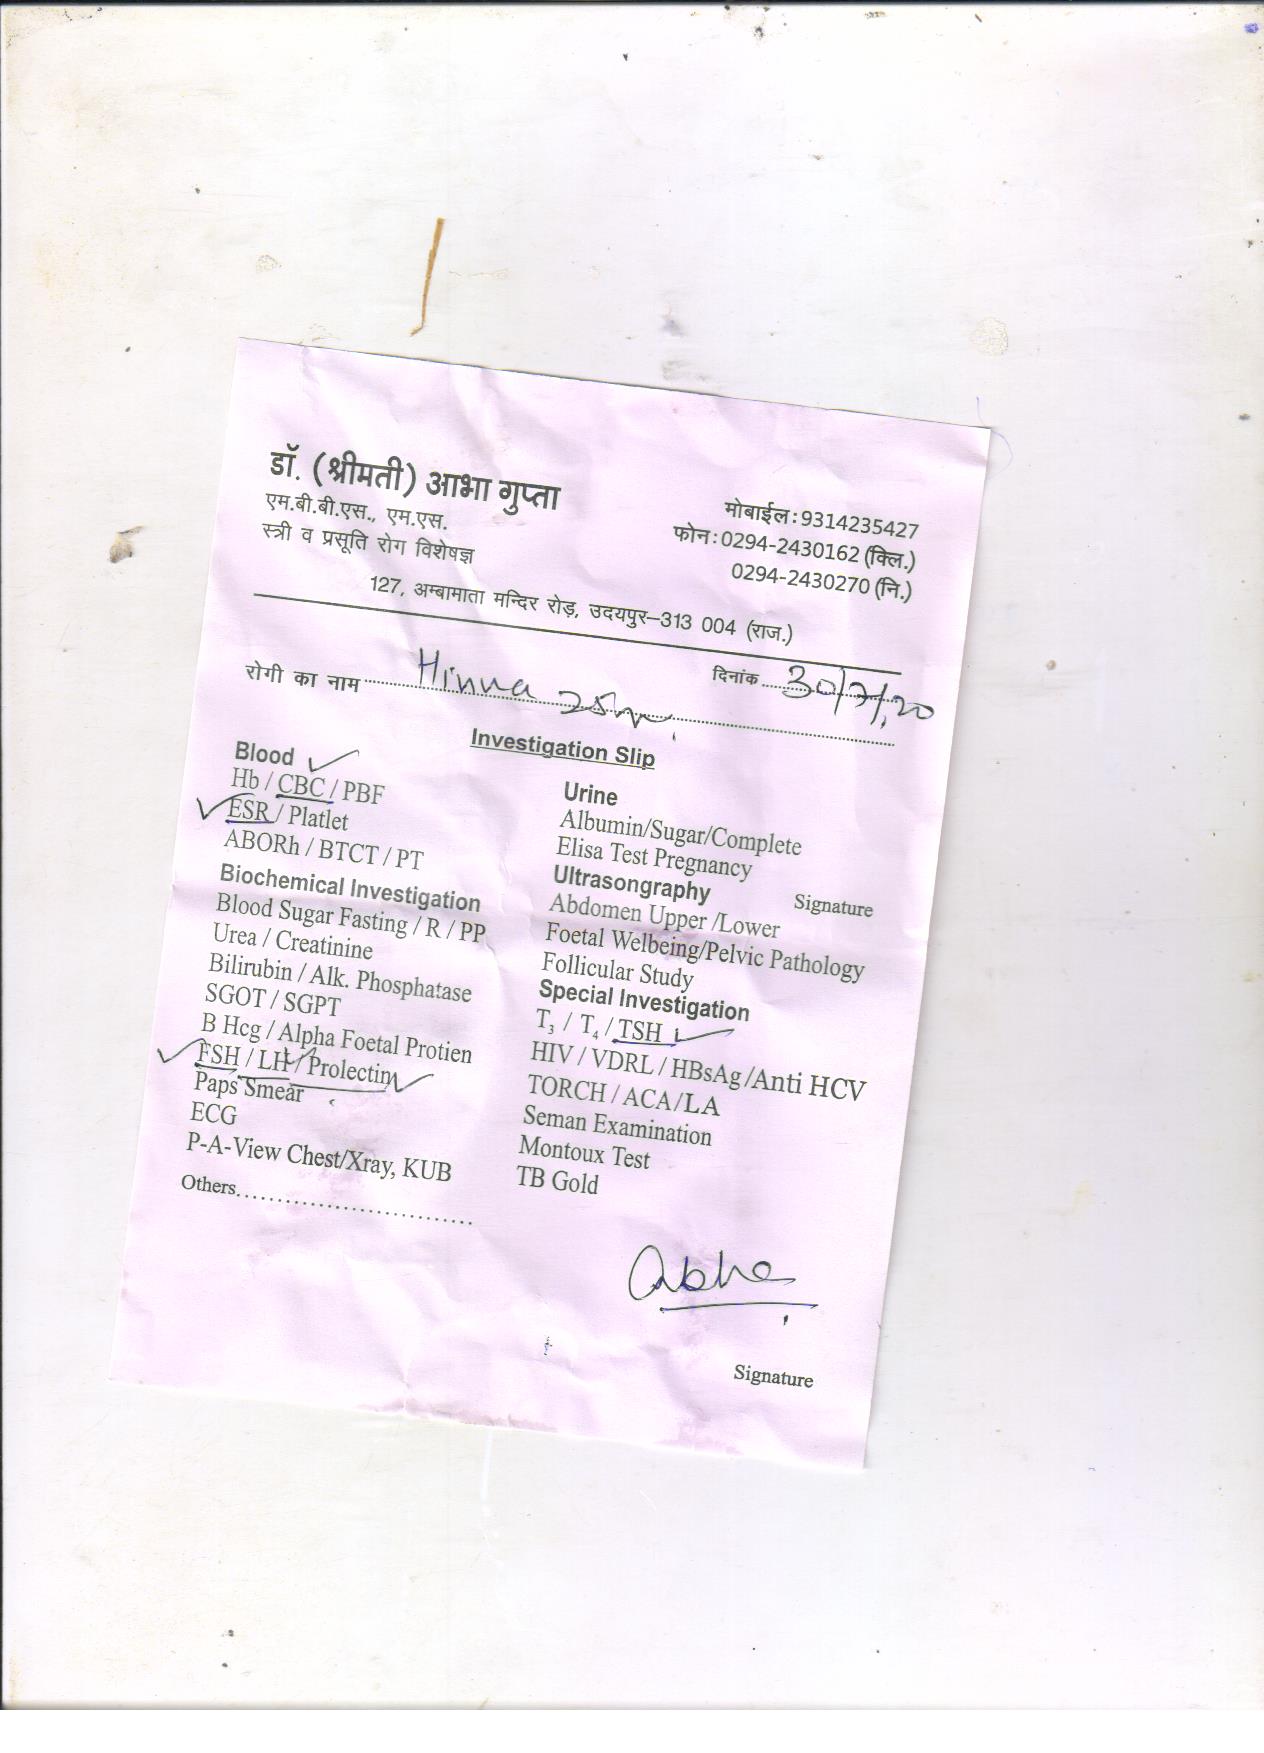 डॉ. (श्रीमती) आभा गुप्ता
एम.बी.बी.एस., एम.एस.
स्त्री व प्रसूति रोग विशेषज्ञ
मोबाईल : 9314235427
फोन : 0294-2430162 (क्लि.)
0294-2430270 (नि.)
127, अम्बामाता मन्दिर रोड़, उदयपुर–313 004 (राज.)
रोगी का नाम
दिनांक 30/7/20
Investigation Slip
Blood
Hb / CBC / PBF
ESR / Platlet
ABORh / BTCT / PT
Biochemical Investigation
Blood Sugar Fasting / R / PP
Urea / Creatinine
Bilirubin / Alk. Phosphatase
SGOT / SGPT
B Hcg / Alpha Foetal Protien
FSH / LH / Prolectin
Paps Smear
ECG
P-A-View Chest/Xray, KUB
Others..............................
Urine
Albumin/Sugar/Complete
Elisa Test Pregnancy
Ultrasongraphy
Signature
Abdomen Upper /Lower
Foetal Welbeing/Pelvic Pathology
Follicular Study
Special Investigation
T3 / T4 / TSH
HIV / VDRL / HBsAg /Anti HCV
TORCH / ACA/LA
Seman Examination
Montoux Test
TB Gold
Abha
Signature